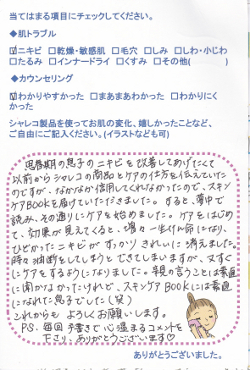 当てはまる項目にチェックしてください。
◆肌トラブル
☑ニキビ □乾燥・敏感肌 □毛穴 □しみ □しわ・小じわ
□たるみ □インナードライ □くすみ □その他( )
◆カウンセリング
☑わかりやすかった □まあまあわかった □わかりにくかった
シャレコ製品を使ってお肌の変化、嬉しかったことなど、
ご自由にご記入ください。(イラストなども可)
思春期の息子のニキビを改善してあげたくて
以前からシャレコの商品とケアの仕方を伝えていた
のですが、なかなか信用してくれなかったので、スキン
ケアBOOKを届けていただきました。すると、夢中で
読み、その通りにケアを始めました。ケアをはじめ
て、効果が見えてくると、増々一生けん命になり、
ひどかったニキビがすっかりきれいに消えました。
時々油断をしてしまうとできてしまいますが、又すぐ
にケアをするようになりました。親の言うことは素直
に聞かなかったけれど、スキンケアBOOKには素直
になれた息子でした(笑)
これからもよろしくお願いします。
P.S. 毎回手書きで心温まるコメントを
下さり、ありがとうございます♡
ありがとうございました。